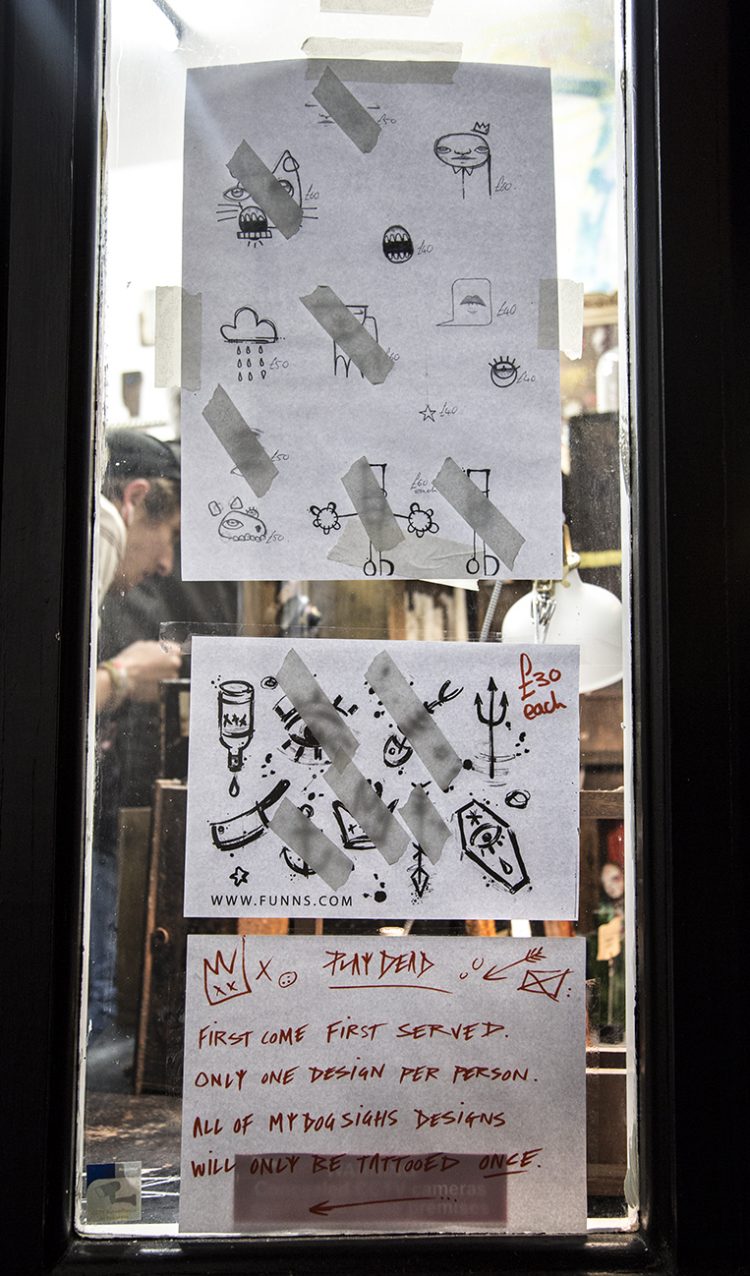 £50
£60
£40
£40
£50
£40
£40
£50
£60
each
£50
£30
each
xxx
WWW.FUNNS.COM
xx X PLAY DEAD
FIRST COME FIRST SERVED.
ONLY ONE DESIGN PER PERSON.
ALL OF MYDOGSIGHS DESIGNS
WILL ONLY BE TATTOOED ONCE.
cameras
premises